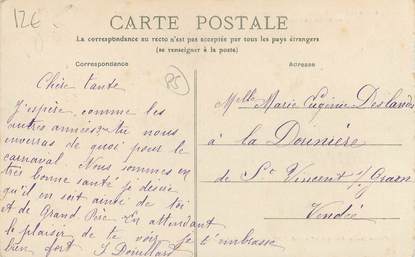 12€
CARTE POSTALE
La correspondance au recto n'est pas acceptée par tous les pays étrangers
(se renseigner à la poste)
Correspondance
Adresse
Chère tante
85
J'espère, comme les
autres années, tu nous
enverras de quoi pour le
carnaval. Nous sommes en
très bonne santé je désire
qu'il en soit ainsi de toi
et de Grand Père En attendant
le plaisir de te voir je t'embrasse
bien fort J Douillard
Melle Marie Eugénie Deslandes
à la Dounière
de St Vincent s/ Graon
Vendée